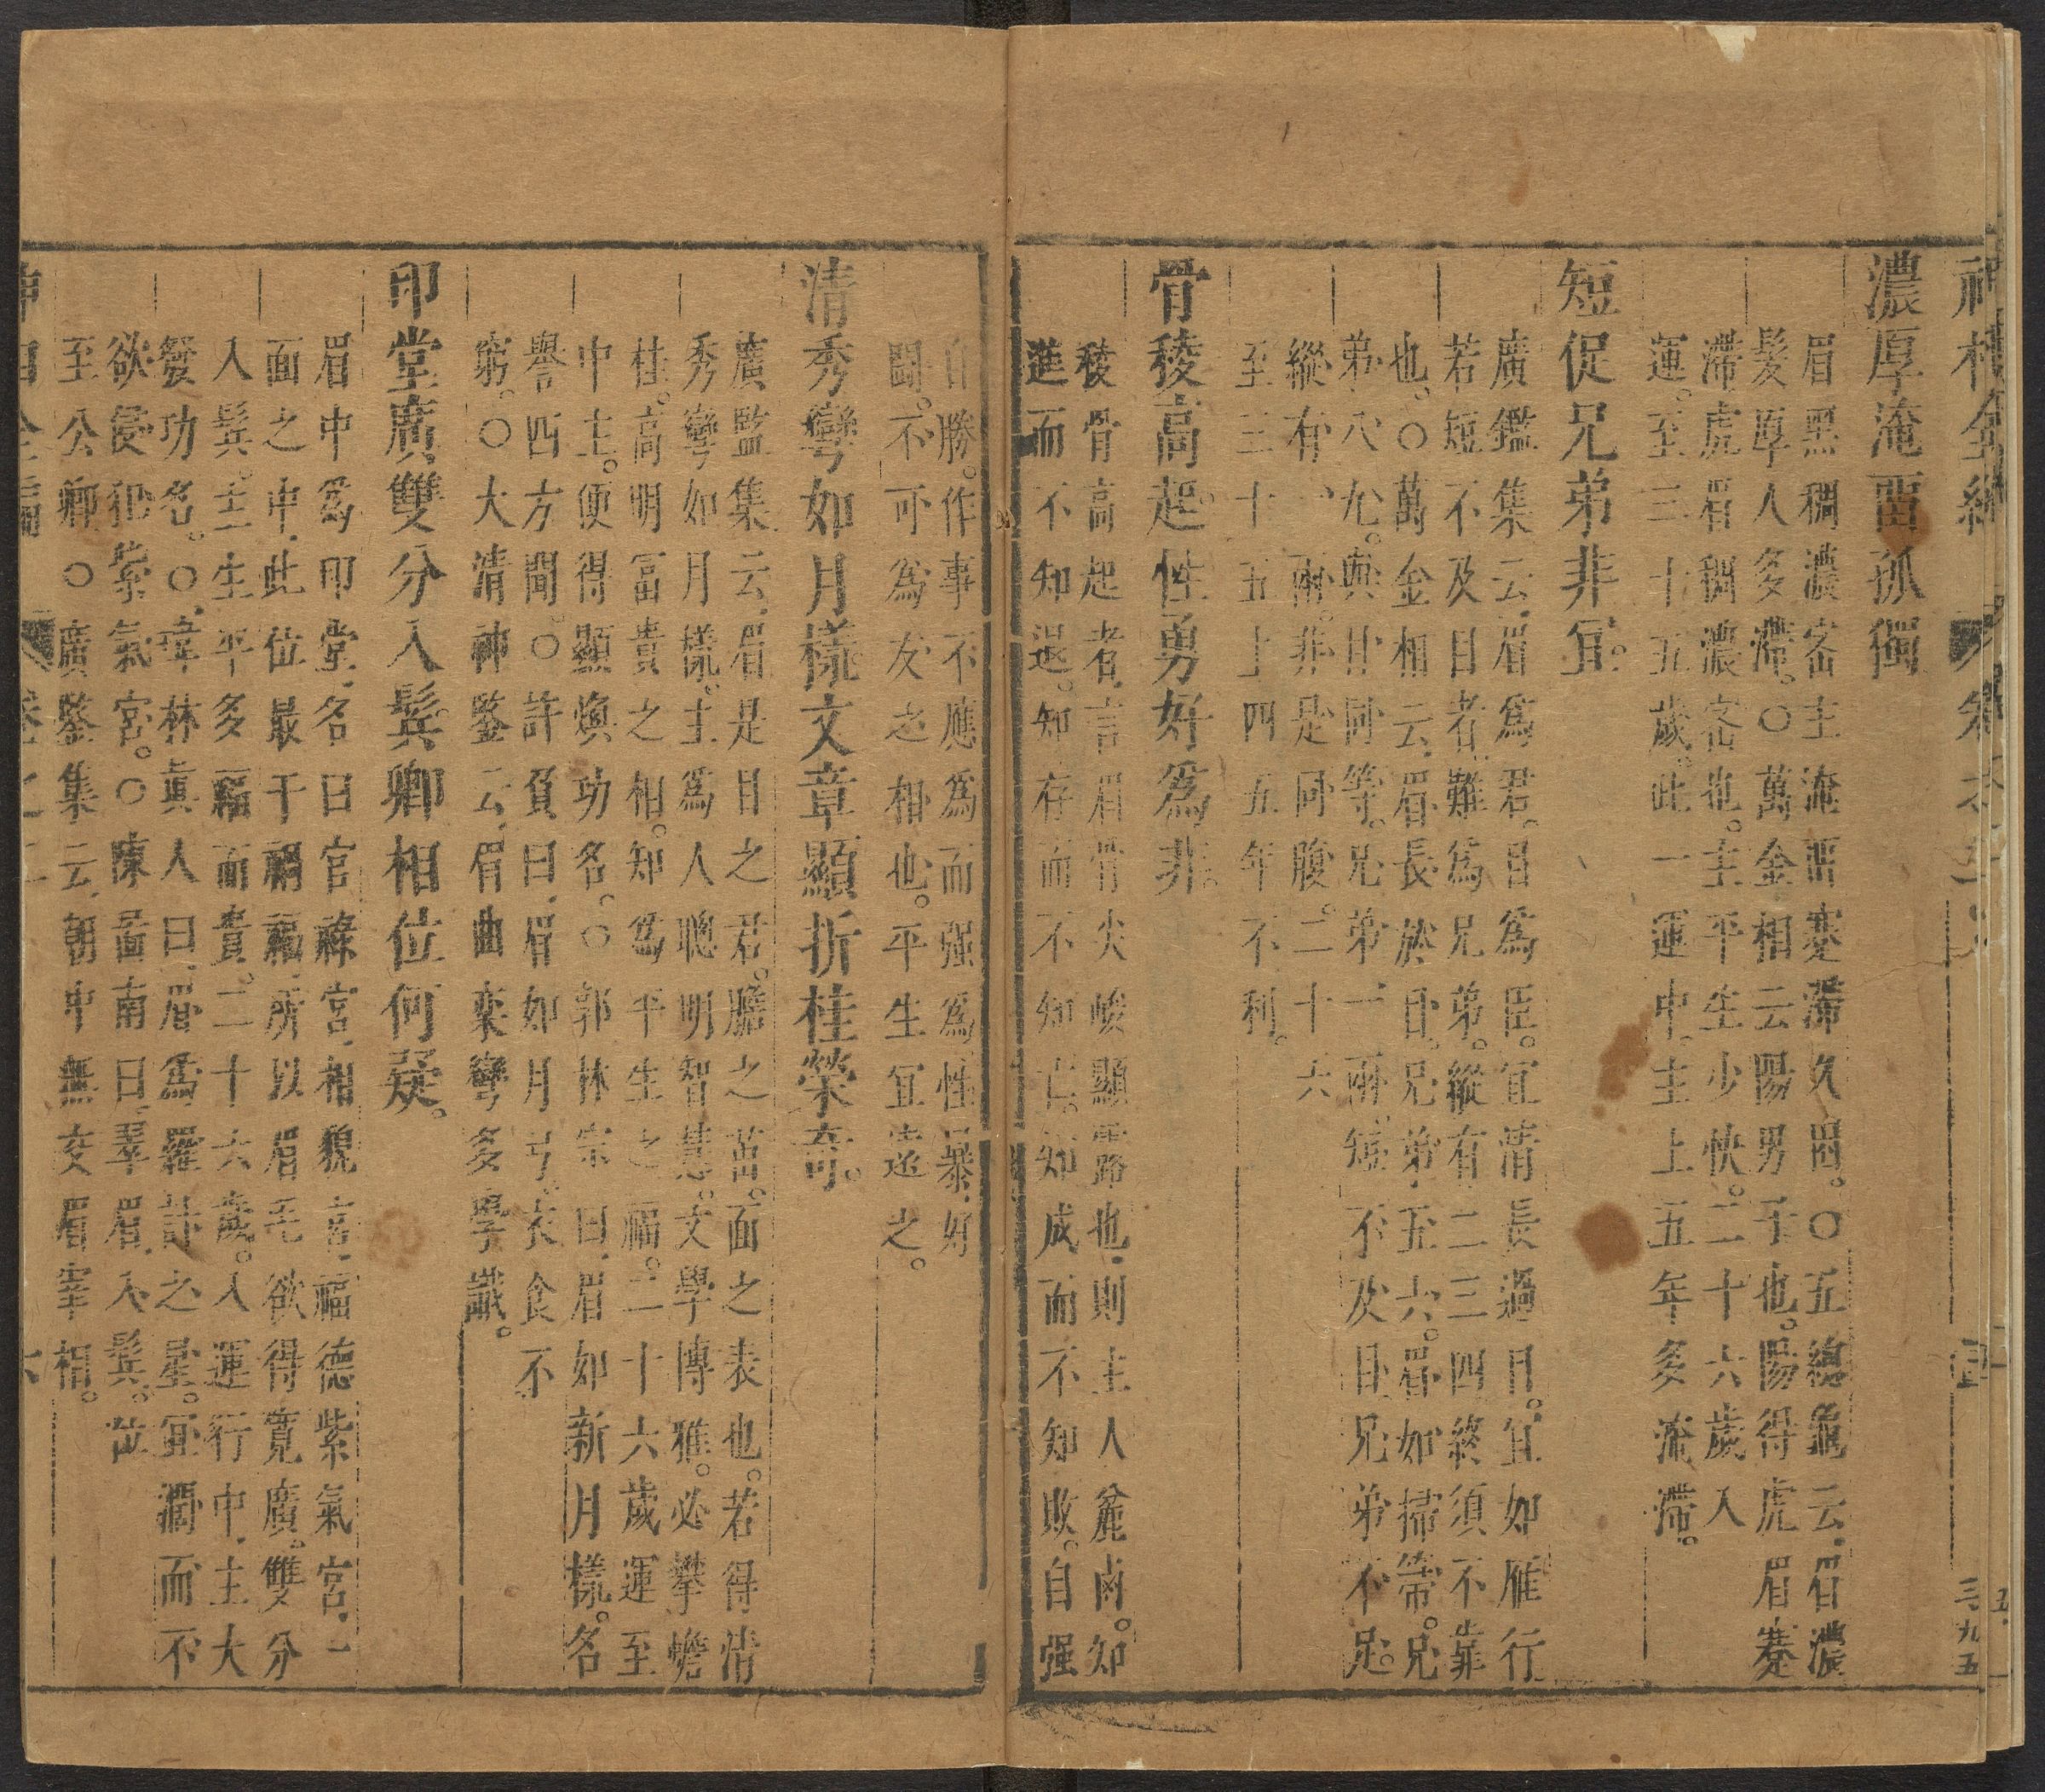 濃厚淹畱孤獨
眉黑稠濃密主淹畱蹇滯久困。○五總龜云眉濃
髮厚人多滯。○萬金相云陽男子也。陽得虎眉蹇
滯虎眉稠濃密也。主平生少快。二十六歲入
運。至三十五歲。此一運中。主上五年多淹滯。
短促兄弟非宜。
廣鑑集云眉爲君。目爲臣。宜清長過目。宜如雁行
若短不及目者。難爲兄弟。縱有二三四終須不靠
也。○萬金相云眉長於目。兄弟五六。眉如掃箒。兄
弟八九。與目同等。兄弟一兩。短不及目。兄弟不足。
縱有一兩。非是同腹。二十六
至三十五上四五年不利。
骨稜高起。性勇好爲非。
稜骨高起者。言眉骨尖峻顯露也。則主人麄鹵。知
進而不知退。知存而不知亡。知成而不知敗。自强
自勝。作事不應爲而强爲。性暴好
鬭。不可爲友之相也。平生宜遠之。
清秀彎如月樣文章顯折桂榮奇。
廣監集云眉是目之君。膽之苗。面之表也。若得清
秀彎如月樣。主爲人聰明智慧。文學博雅。必攀蟾
桂。高明富貴之相。知爲平生之福。二十六歲運至
中主。便得顯煥功名。○郭林宗曰眉如新月樣。名
譽四方聞。○許負曰眉如月弓。衣食不
窮。○大清神鑒云眉曲來彎多學識。
印堂廣雙分入鬂卿相位何疑。
眉中爲印堂。名曰官祿宮。相貌宮。福德紫氣宮。一
面之中。此位最干禍福。所以眉毛欲得寬廣。雙分
入鬂。主一生平多福而貴。二十六歲。入運行中。主大
發功名。○韋林眞人曰眉爲羅計之星。宜濶而不
欲侵犯紫氣宮。○陳啚南曰翠眉入鬂。位
至公卿。○廣鑒集云朝中無交眉宰相。